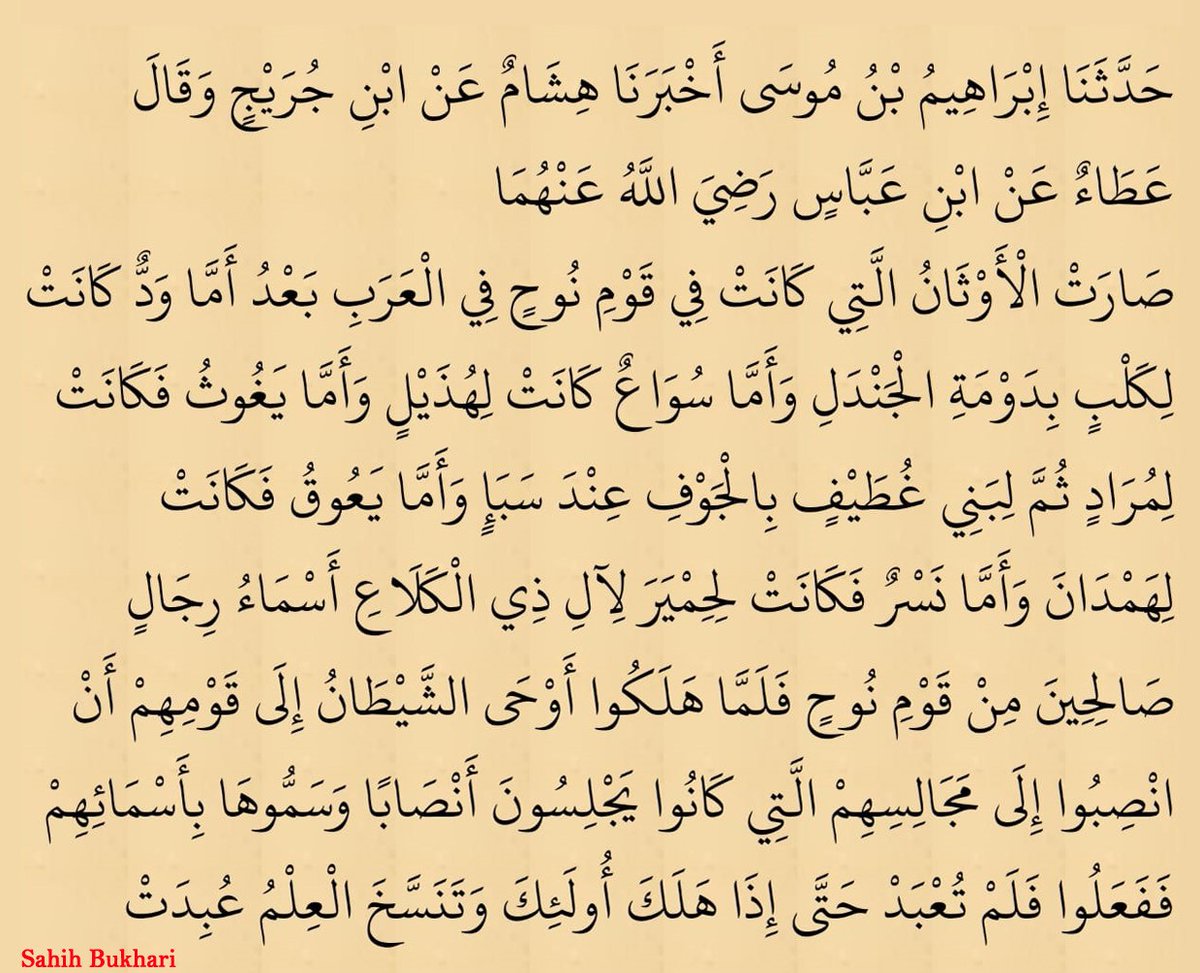 حَدَّثَنَا إِبْرَاهِيمُ بْنُ مُوسَى أَخْبَرَنَا هِشَامٌ عَنْ ابْنِ جُرَيْجٍ وَقَالَ
عَطَاءٌ عَنْ ابْنِ عَبَّاسٍ رَضِيَ اللَّهُ عَنْهُمَا
صَارَتْ الْأَوْثَانُ الَّتِي كَانَتْ فِي قَوْمِ نُوحٍ فِي الْعَرَبِ بَعْدُ أَمَّا وَدٌّ كَانَتْ
لِكَلْبٍ بِدَوْمَةِ الْجَنْدَلِ وَأَمَّا سُوَاعٌ كَانَتْ لِهُذَيْلٍ وَأَمَّا يَغُوثُ فَكَانَتْ
لِمُرَادٍ ثُمَّ لِبَنِي غُطَيْفٍ بِالْجَوْفِ عِنْدَ سَبَإٍ وَأَمَّا يَعُوقُ فَكَانَتْ
لِهَمْدَانَ وَأَمَّا نَسْرٌ فَكَانَتْ لِحِمْيَرَ لِآلِ ذِي الْكَلَاعِ أَسْمَاءُ رِجَالٍ
صَالِحِينَ مِنْ قَوْمِ نُوحٍ فَلَمَّا هَلَكُوا أَوْحَى الشَّيْطَانُ إِلَى قَوْمِهِمْ أَنْ
انْصِبُوا إِلَى مَجَالِسِهِمْ الَّتِي كَانُوا يَجْلِسُونَ أَنْصَابًا وَسَمُّوهَا بِأَسْمَائِهِمْ
فَفَعَلُوا فَلَمْ تُعْبَدْ حَتَّى إِذَا هَلَكَ أُولَئِكَ وَتَنَسَّخَ الْعِلْمُ عُبِدَتْ
Sahih Bukhari